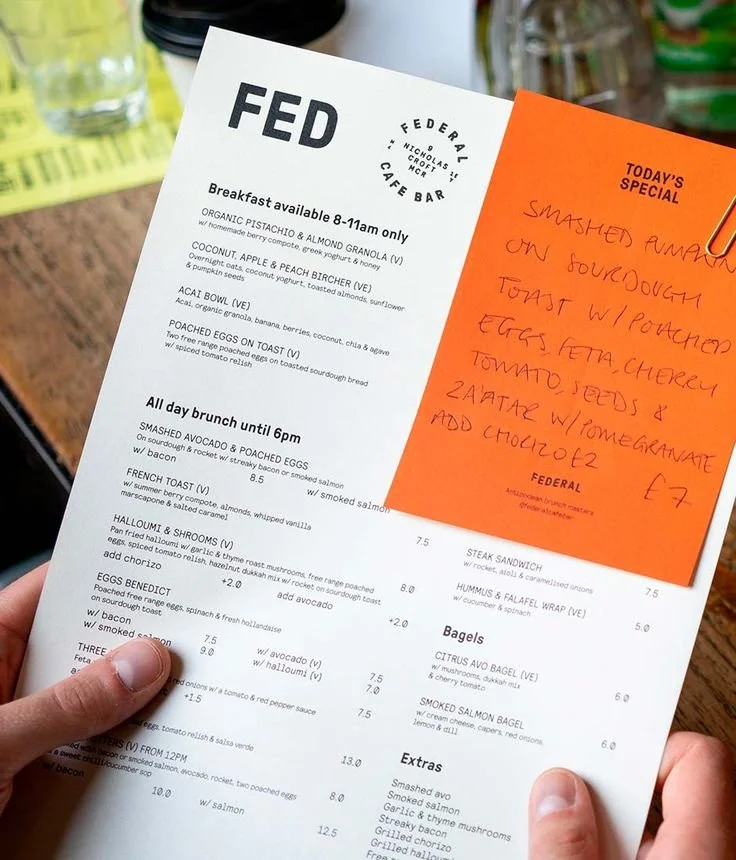 FED
FEDERAL
9
NICHOLAS
CROFT
MCR
CAFE BAR
Breakfast available 8-11am only
ORGANIC PISTACHIO & ALMOND GRANOLA (V)
w/ homemade berry compote, greek yoghurt & honey
COCONUT, APPLE & PEACH BIRCHER (VE)
Overnight oats, coconut yoghurt, toasted almonds, sunflower
& pumpkin seeds
ACAI BOWL (VE)
Acai, organic granola, banana, berries, coconut, chia & agave
POACHED EGGS ON TOAST (V)
Two free range poached eggs on toasted sourdough bread
w/ spiced tomato relish
All day brunch until 6pm
SMASHED AVOCADO & POACHED EGGS
On sourdough & rocket w/ streaky bacon or smoked salmon
w/ bacon 8.5 w/ smoked salmon
FRENCH TOAST (V)
w/ summer berry compote, almonds, whipped vanilla
marscapone & salted caramel 7.5
HALLOUMI & SHROOMS (V)
Pan fried halloumi w/ garlic & thyme roast mushrooms, free range poached
eggs, spiced tomato relish, hazelnut dukkah mix w/ rocket on sourdough toast 8.0
add chorizo +2.0 add avocado +2.0
EGGS BENEDICT
Poached free range eggs, spinach & fresh hollandaise
on sourdough toast
w/ bacon 7.5 w/ avocado (v) 7.5
w/ smoked salmon 9.0 w/ halloumi (v) 7.0
THREE
Feta
red onions w/ a tomato & red pepper sauce 7.5
+1.5
eggs, tomato relish & salsa verde 13.0
(V) FROM 12PM
bacon or smoked salmon, avocado, rocket, two poached eggs 8.0
a sweet chilli/cucumber sop
w/ bacon 10.0 w/ salmon 12.5
TODAY'S
SPECIAL
SMASHED PUMPKIN
ON SOURDOUGH
TOAST W/ POACHED
EGGS, FETA, CHERRY
TOMATO, SEEDS &
ZA'ATAR W/ POMEGRANATE
ADD CHORIZO £2 £7
FEDERAL
Antipodean brunch roasters
@federalcafebar
STEAK SANDWICH
w/ rocket, aioli & caramelised onions 7.5
HUMMUS & FALAFEL WRAP (VE)
w/ cucumber & spinach 5.0
Bagels
CITRUS AVO BAGEL (VE)
w/ mushrooms, dukkah mix
& cherry tomato 6.0
SMOKED SALMON BAGEL
w/ cream cheese, capers, red onions,
lemon & dill 6.0
Extras
Smashed avo
Smoked salmon
Garlic & thyme mushrooms
Streaky bacon
Grilled chorizo
Grilled halloumi
Free